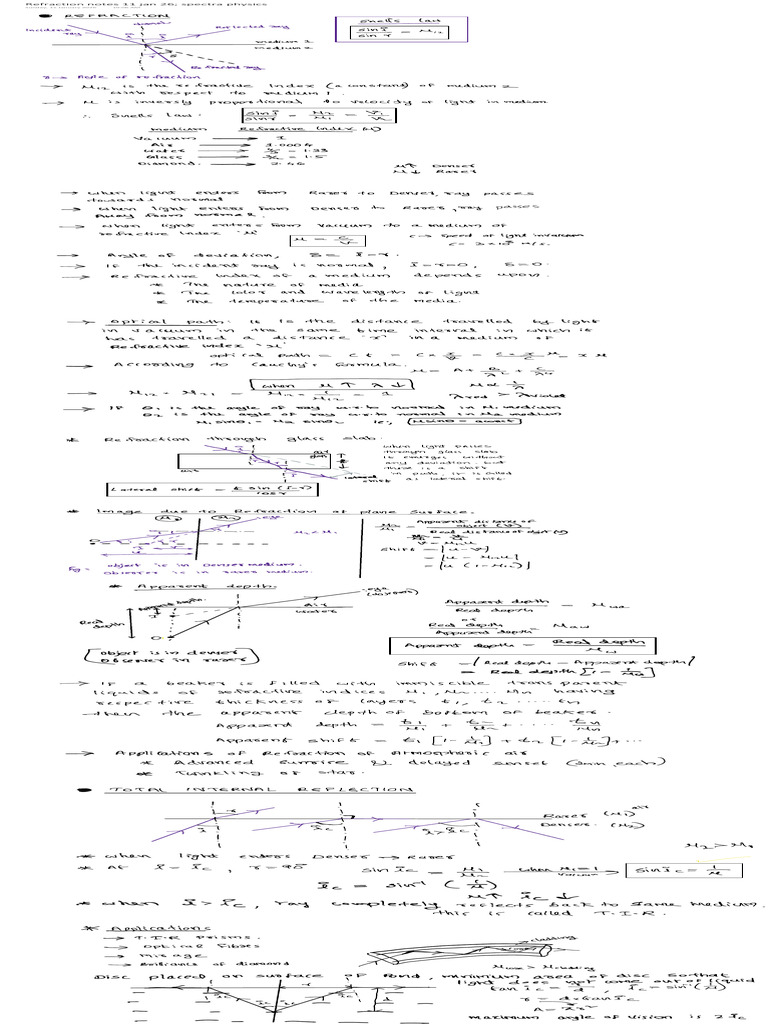 Refraction notes 11 jan 26; spectra physics
REFRACTION
Snells law
sin i / sin r = μ12
normal
Incident ray
Reflected ray
medium 1
medium 2
Refracted ray
r → Angle of refraction
→ μ12 is the refractive Index (a constant) of medium 2
with respect to medium 1
→ μ is inversly proportional to velocity of light in medium
∴ Snells Law: sin i / sin r = μ2 / μ1 = v1 / v2
medium Refractive Index (μ)
Vacuum → 1
Air → 1.0004
Water → 4/3 = 1.33
Glass → 3/2 = 1.5
Diamond →
μ↑ Denser
μ↓ Rarer
→ When light enters from Rarer to Denser, ray passes
towards normal
→ When light enters from Denser to Rarer, ray passes
Away from normal.
→ When light enters from Vacuum to a medium of
refractive index 'μ'
μ = c / v
c → speed of light in vacuum
→ Angle of deviation, δ = i - r.
→ If the incident ray is normal, i = r = 0, δ = 0.
→ Refractive Index of a medium depends upon.
* The nature of media
* The color and wavelength of light
* The temperature of the media.
→ Optical path: it is the distance travelled by light
in vacuum in the same time interval in which it
has travelled a distance 'x' in a medium of
Refractive index 'μ'
optical path = c t = c × x/v
→ According to Cauchy's formula.
when μ ↑ λ ↓
λred > λviolet
→ If θ1 is the angle of ray w.r.to normal in μ1 medium
θ2 is the angle of ray w.r.to normal in μ2 medium
μ1 sinθ1 = μ2 sinθ2 ie, μ sinθ = const
* Refraction through glass slab.
air
air
when light passes
through glass slab
it emerges without
any deviation, but
there is a shift
in path, it is called
as lateral shift.
lateral shift
Lateral shift = t sin (i-r) / cos r
* Image due to Refraction at plane Surface.
μ2 μ1
Apparent distance of object (v)
Real distance of object (u)
shift = |u - v|
Eg: object is in Denser medium.
Observer is in rarer medium.
* Apparent depth.
eye (observer)
Air
water
Real depth
Apparent depth / Real depth = μwa
or
Real depth / Apparent depth = μaw
Apparent depth = Real depth / μw
Object is in denser
Observer in rarer
Shift = | Real depth - Apparent depth |
= Real depth [1 - 1/μw]
→ If a beaker is filled with immiscible transparent
liquids of refractive indices μ1, μ2 .... μn having
respective thickness of layers t1, t2 ..... tn
then the apparent depth of bottom of beaker.
Apparent depth = t1/μ1 + t2/μ2 + ..... tn/μn
Apparent shift = t1 [1 - 1/μ1] + t2 [1 - 1/μ2] + ...
→ Applications of Refraction of Atmospheric air
* Advanced sunrise & delayed sunset (2min each)
* Twinkling of star.
TOTAL INTERNAL REFLECTION
Rarer (μ1) air
Denser. (μ2)
μ2 > μ1
* When light enters Denser → Rarer
* At i = ic, r = 90°
sin ic = μ1 / μ2
when μ1 = 1
vacuum
sin ic = 1/μ
ic = sin⁻¹ (1/μ)
μ↑ ic ↓
* when i > ic, ray completely reflects back to same medium.
this is called T.I.R.
* Applications
→ T.I.R Prisms.
→ Optical Fibres
→ Mirage
→ Brilliance of diamond
cladding
μcore > μcladding
Disc placed on surface of pond, minimum area of disc so that
light does not come out of liquid
tan ic = r/d
r = d tan ic
A = πr²
maximum angle of vision is 2 ic